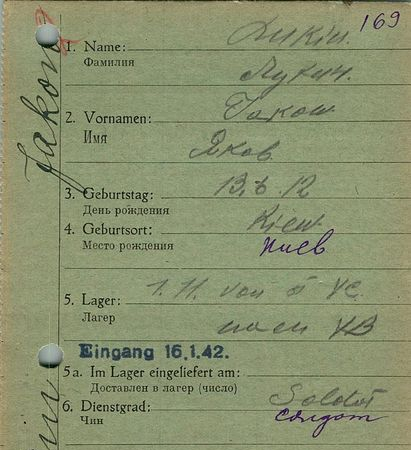 169
1. Name: Lukin
Фамилия Лукин
2. Vornamen: Jakow
Имя Яков
3. Geburtstag: 13.6.12
День рождения
4. Geburtsort: Kiew
Место рождения Киев
5. Lager: 1.11. von
Лагер nach
Eingang 16.1.42.
5a. Im Lager eingeliefert am:
Доставлен в лагер (число)
6. Dienstgrad: Soldat
Чин солдат
Jakow